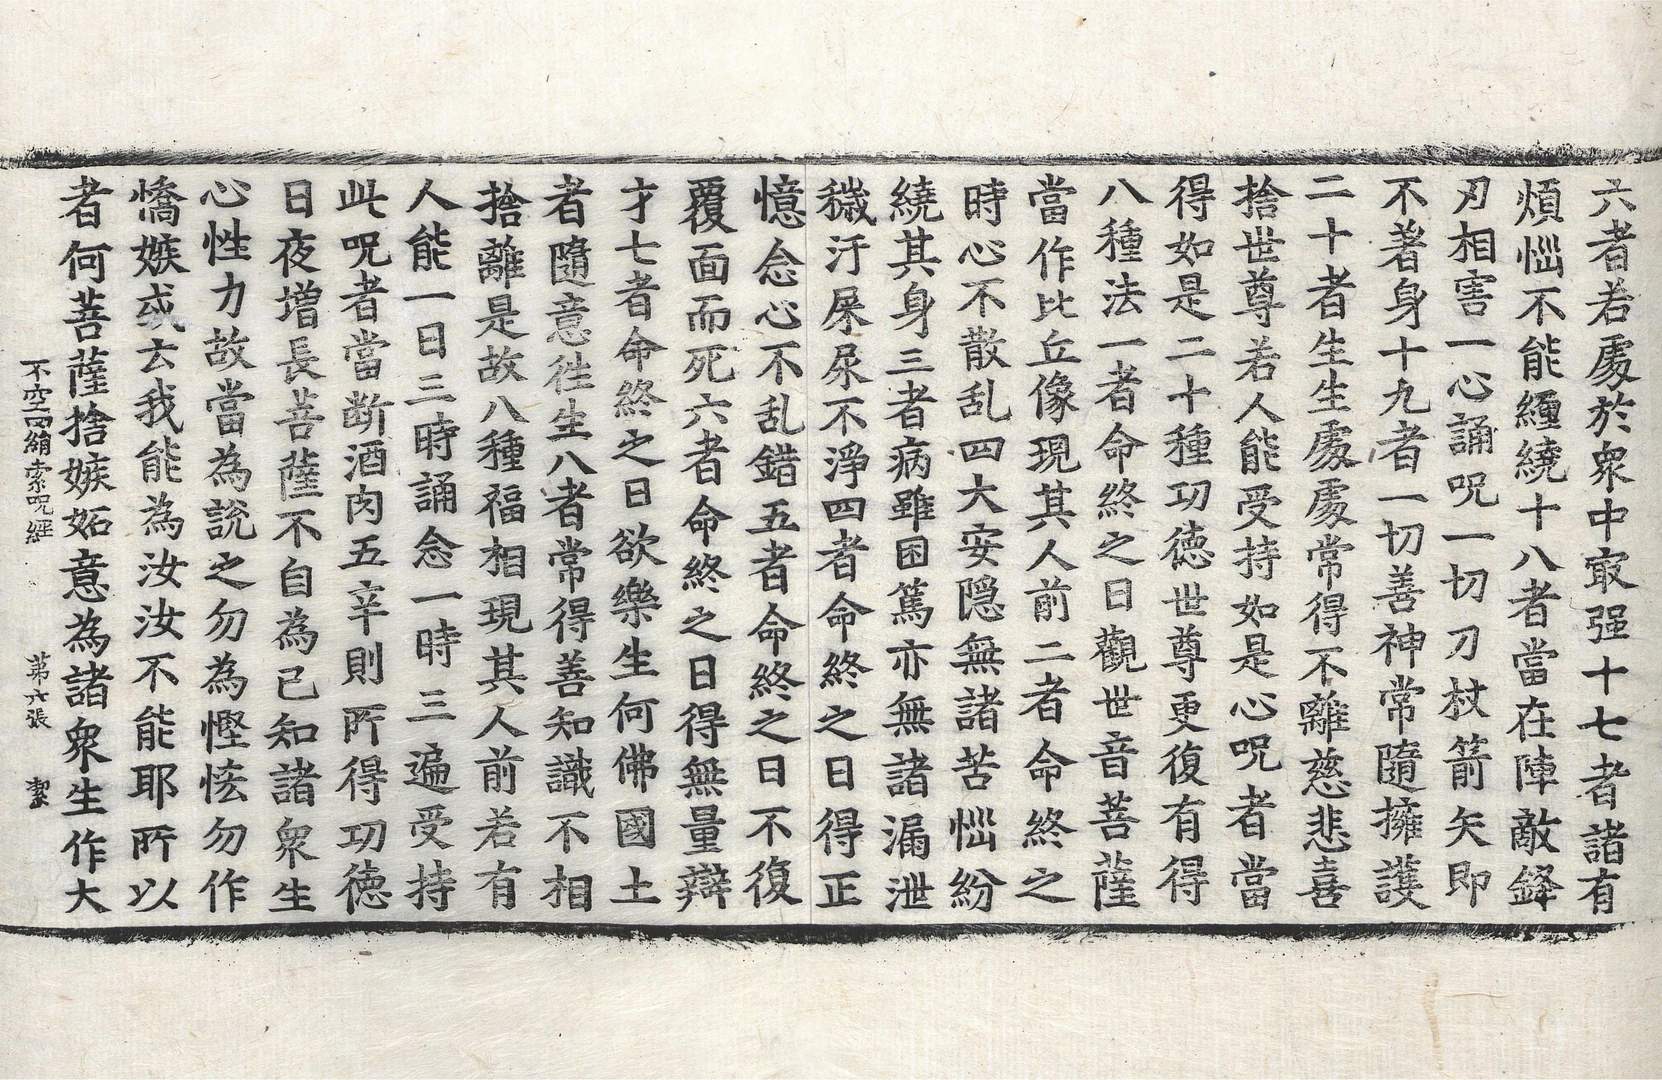 六者若處於衆中㝡强十七者諸有
煩惱不能纏繞十八者當在陣敵鋒
刃相害一心誦呪一切刀杖箭矢即
不著身十九者一切善神常隨擁護
二十者生生處處常得不離慈悲喜
捨世尊若人能受持如是心呪者當
得如是二十種功德世尊更復有得
八種法一者命終之日觀世音菩薩
當作比丘像現其人前二者命終之
時心不散乱四大安隱無諸苦惱紛
繞其身三者病雖困篤亦無諸漏泄
穢汙屎尿不淨四者命終之日得正
憶念心不乱錯五者命終之日不復
覆面而死六者命終之日得無量辯
才七者命終之日欲樂生何佛國土
者隨意徃生八者常得善知識不相
捨離是故八種福相現其人前若有
人能一日三時誦念一時三遍受持
此呪者當断酒肉五辛則所得功德
日夜增長菩薩不自為己知諸衆生
心性力故當為說之勿為慳悋勿作
憍嫉或云我能為汝汝不能耶所以
者何菩薩捨嫉妬意為諸衆生作大
不空罥索呪經 第六張 㓗